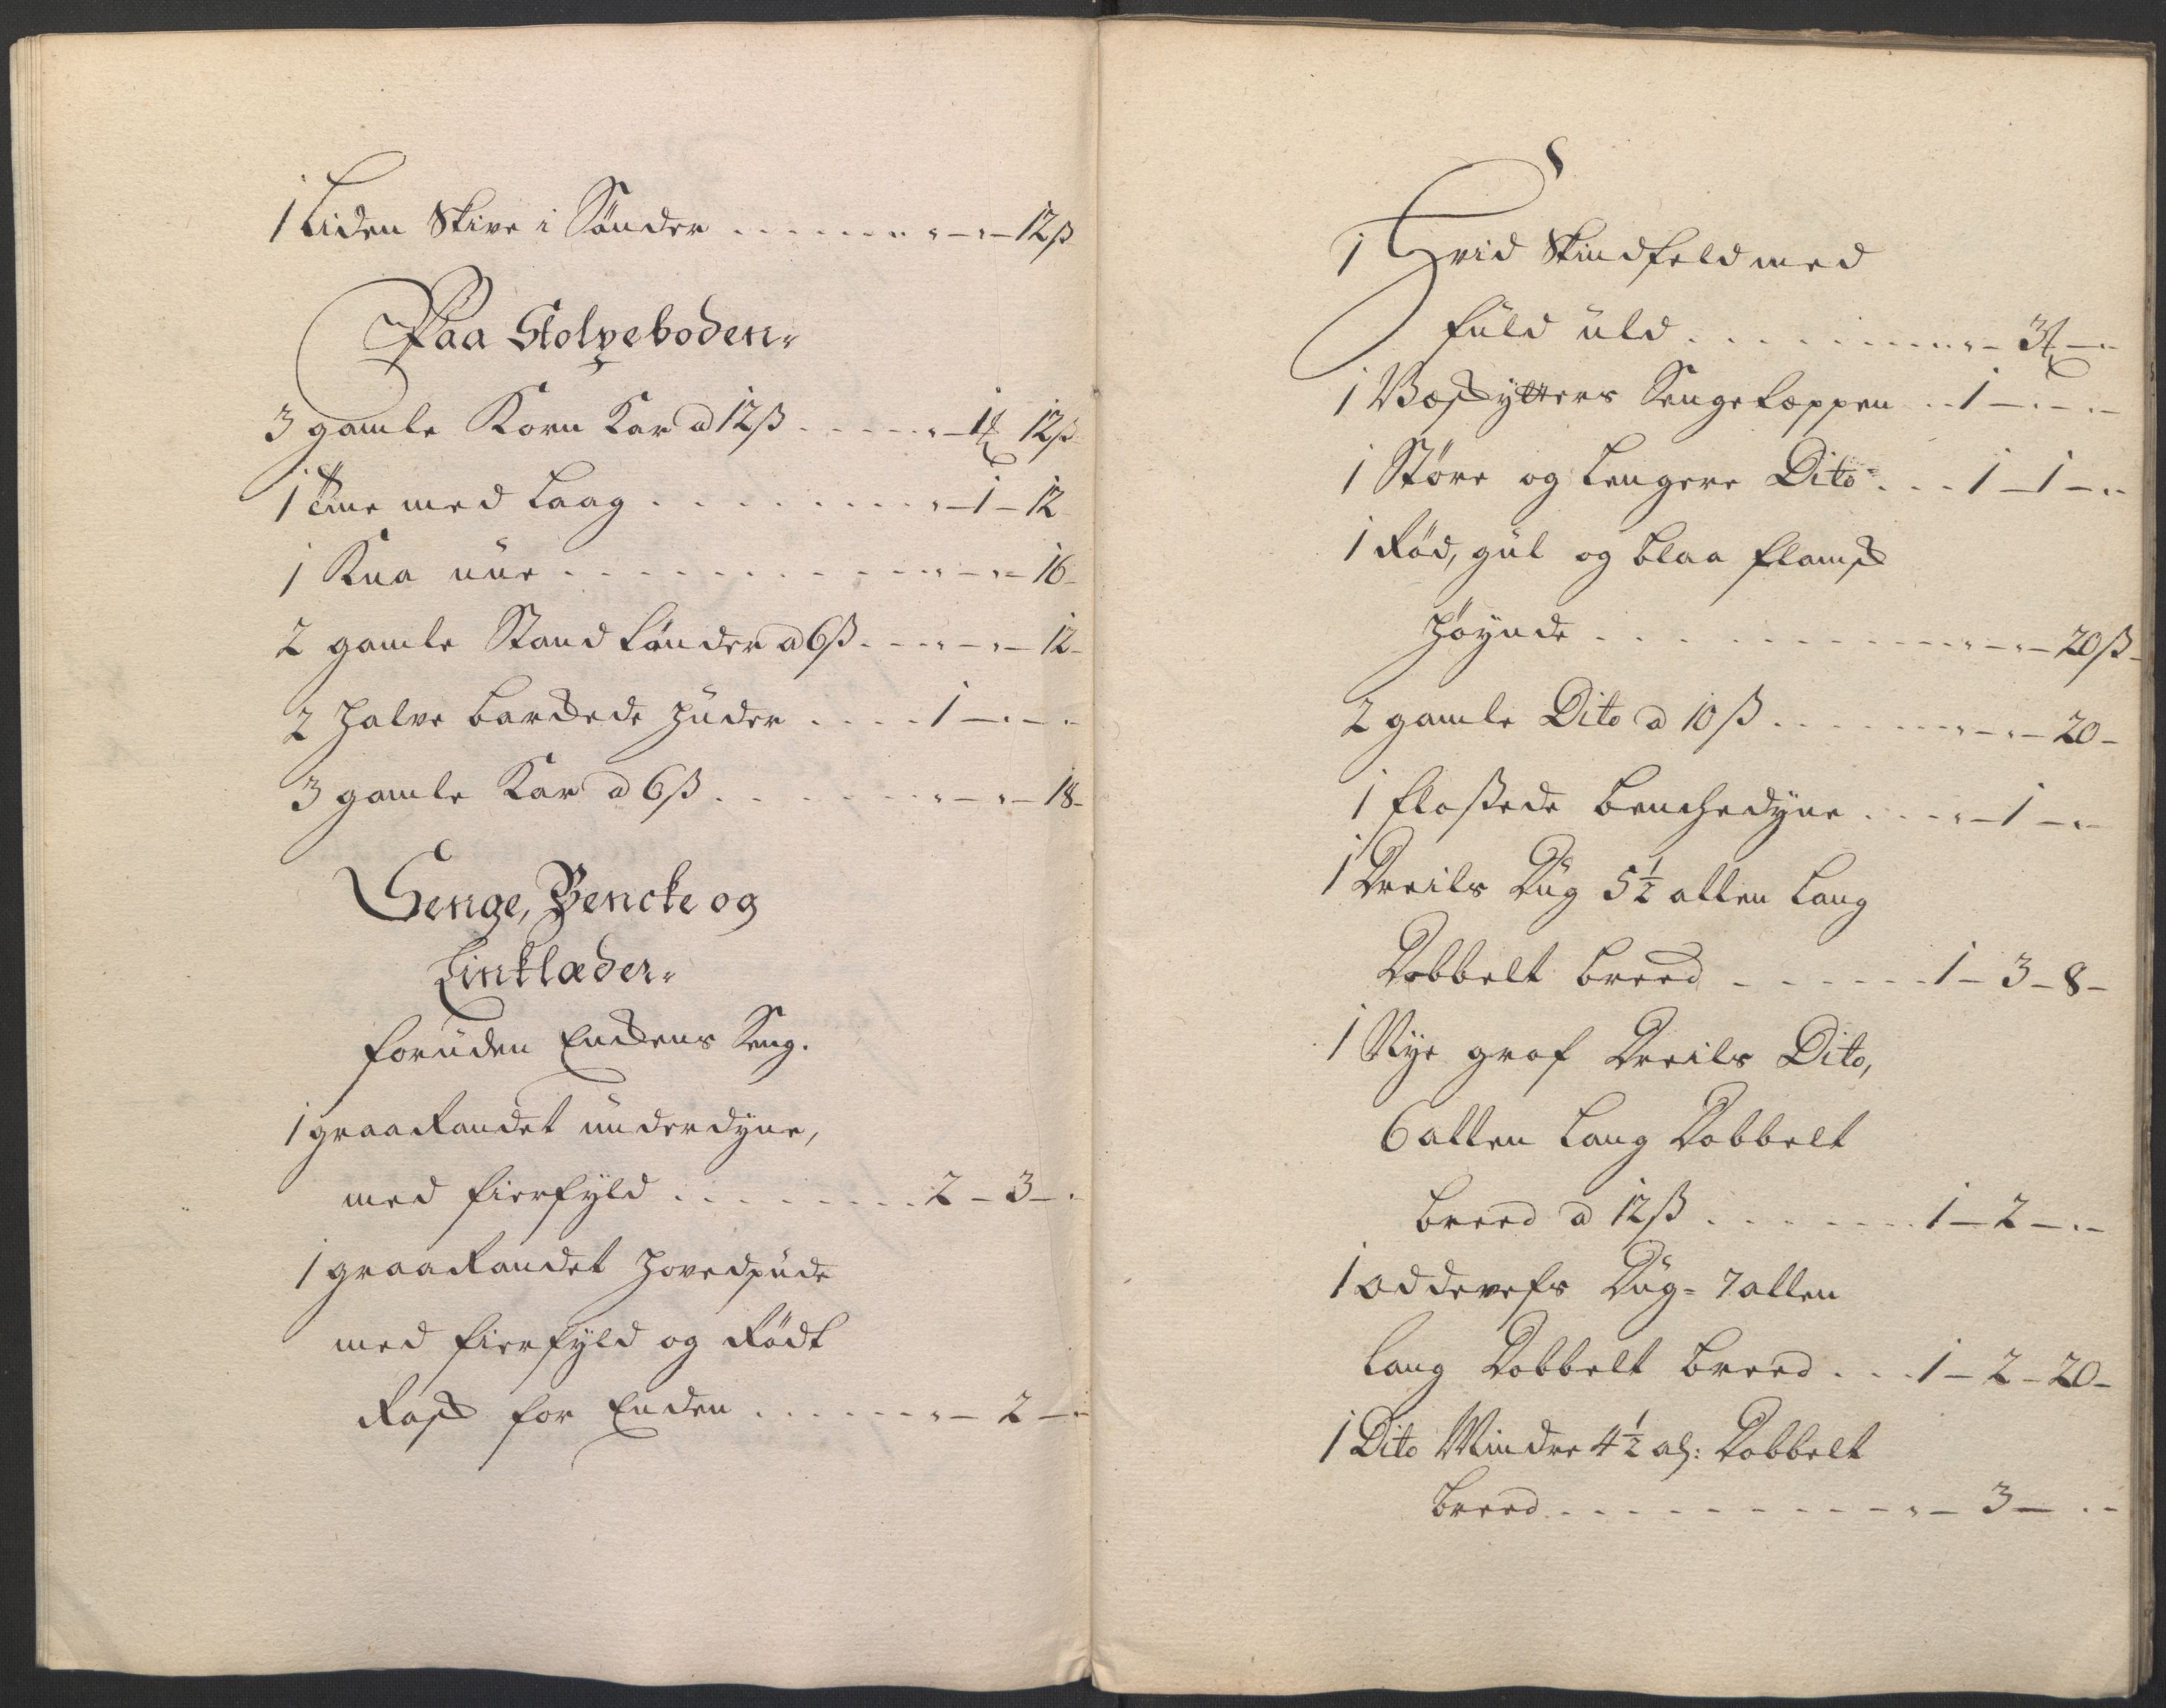 1 Liden Skive i Sönder . . . . . . . - - 12ß
Paa Stolpeboden
3 gamle Korn Kar a 12ß . . . . . - 1 12ß
1 Eme med Laag . . . . . . . . - 1 - 12
1 Kna uur . . . . . . . . . . - - 16 -
2 gamle Stand tönder a 6ß . . . . - - 12 -
2 Halve barkede Huder . . . . 1 - - -
3 gamle Kar a 6ß . . . . . . . - - 18 -
Senge, Bencke og
Linklæder
foruden Enkens Seng.
1 graa Randet underdyne,
med fierfyld . . . . . . . . 2 - 3 -
1 graa Randet Hovedpude
med fierfyld og Rödt
Rask for Enden . . . . . . - 2 -
1 Hvid Skindfeld med
fuld uld . . . . . . . . . - 3 -
1 Sengetæppen . . 1 - - -
1 Störe og Lengere Dito . . . 1 - 1 - -
1 Röd, gul og blaa flamsk
Höynde . . . . . . . . . . - - 20ß -
2 gamle Dito a 10ß . . . . . . . - - 20 -
1 floßede benchedyne . . . . - 1 - -
1 Dreils Dug 5½ allen Lang
Dobbelt breed . . . . . . . 1 - 3 - 8 -
1 Nye grof Dreils Dito,
6 allen Lang Dobbelt
breed a 12ß . . . . . . . 1 - 2 - -
1 oddevefs Dug - 7 allen
Lang Dobbelt breed . . . 1 - 2 - 20 -
1 Dito Mindre 4½ al: Dobbelt
breed . . . . . . . . . . - 3 - -